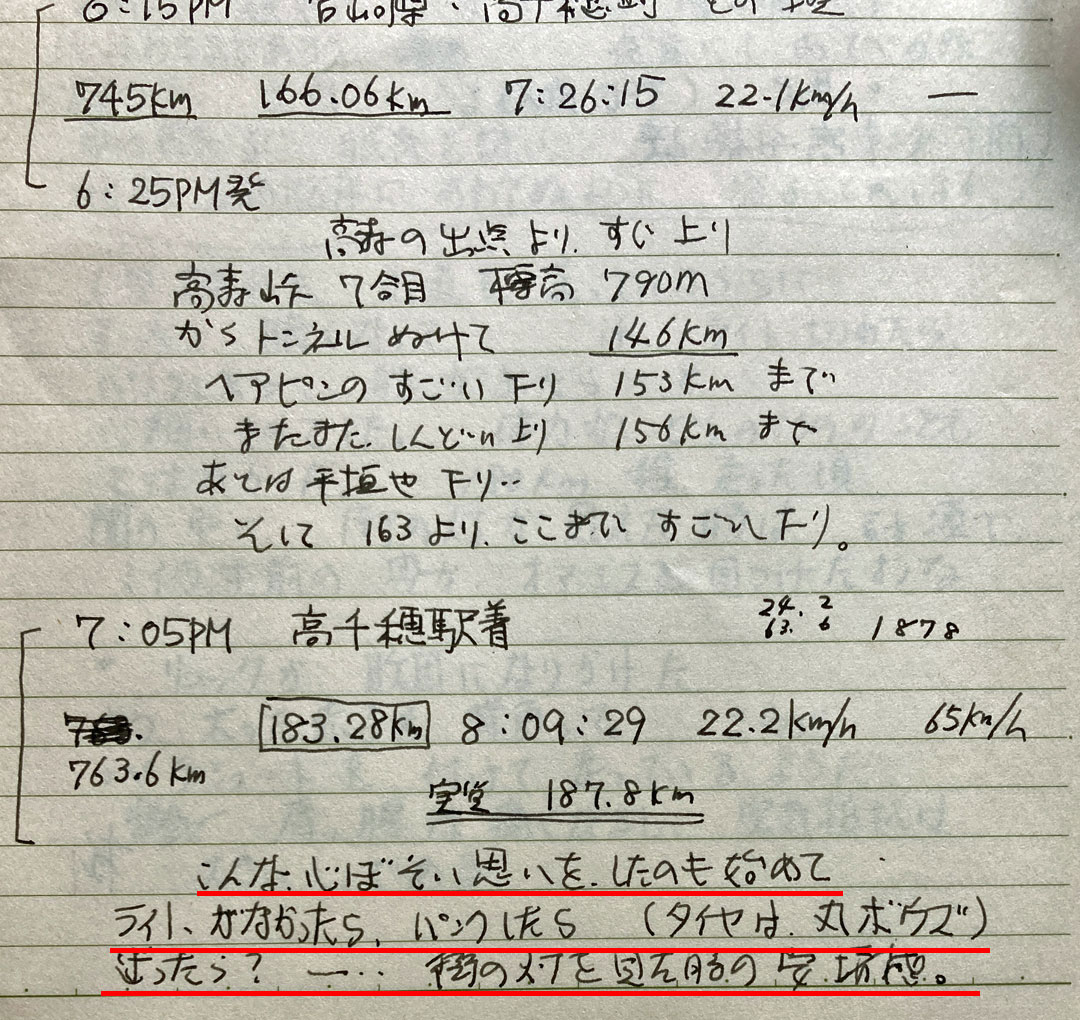 6:15PM 宮崎県・高千穂町
745km 166.06km 7:26:15 22.1km/h —
6:25PM発
高寿の出点より、すぐ上り
高寿峠 7合目 標高 790M
からトンネルぬけて 146km
ヘアピンのすごい下り 153kmまで
またまた、しんどい上り 156kmまで
あとは平坦や下り‥
そして 163より、ここまで すごい下り。
7:05PM 高千穂駅着 24.2
63.6 1878
183.28km 8:09:29 22.2km/h 65km/h
763.6km
実堂 187.8km
こんな、心ぼそい思いを、したのも始めて
ライト、がなかったら、パンクしたら (タイヤは、丸ボウズ)
迷ったら? —‥ 街の灯を見た時の安堵感。